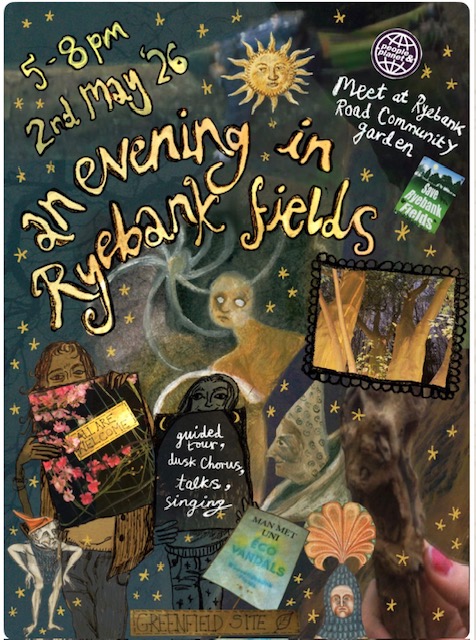 5-8pm
2nd May '26
people &
planet
Meet at Ryebank
Road Community
garden
an evening in
Ryebank fields
Save
Ryebank
Fields
ALL ARE
WELCOME
guided
tour,
dusk chorus,
talks,
singing
MAN MET
UNI
ECO
VANDALS
GREENFIELD SITE